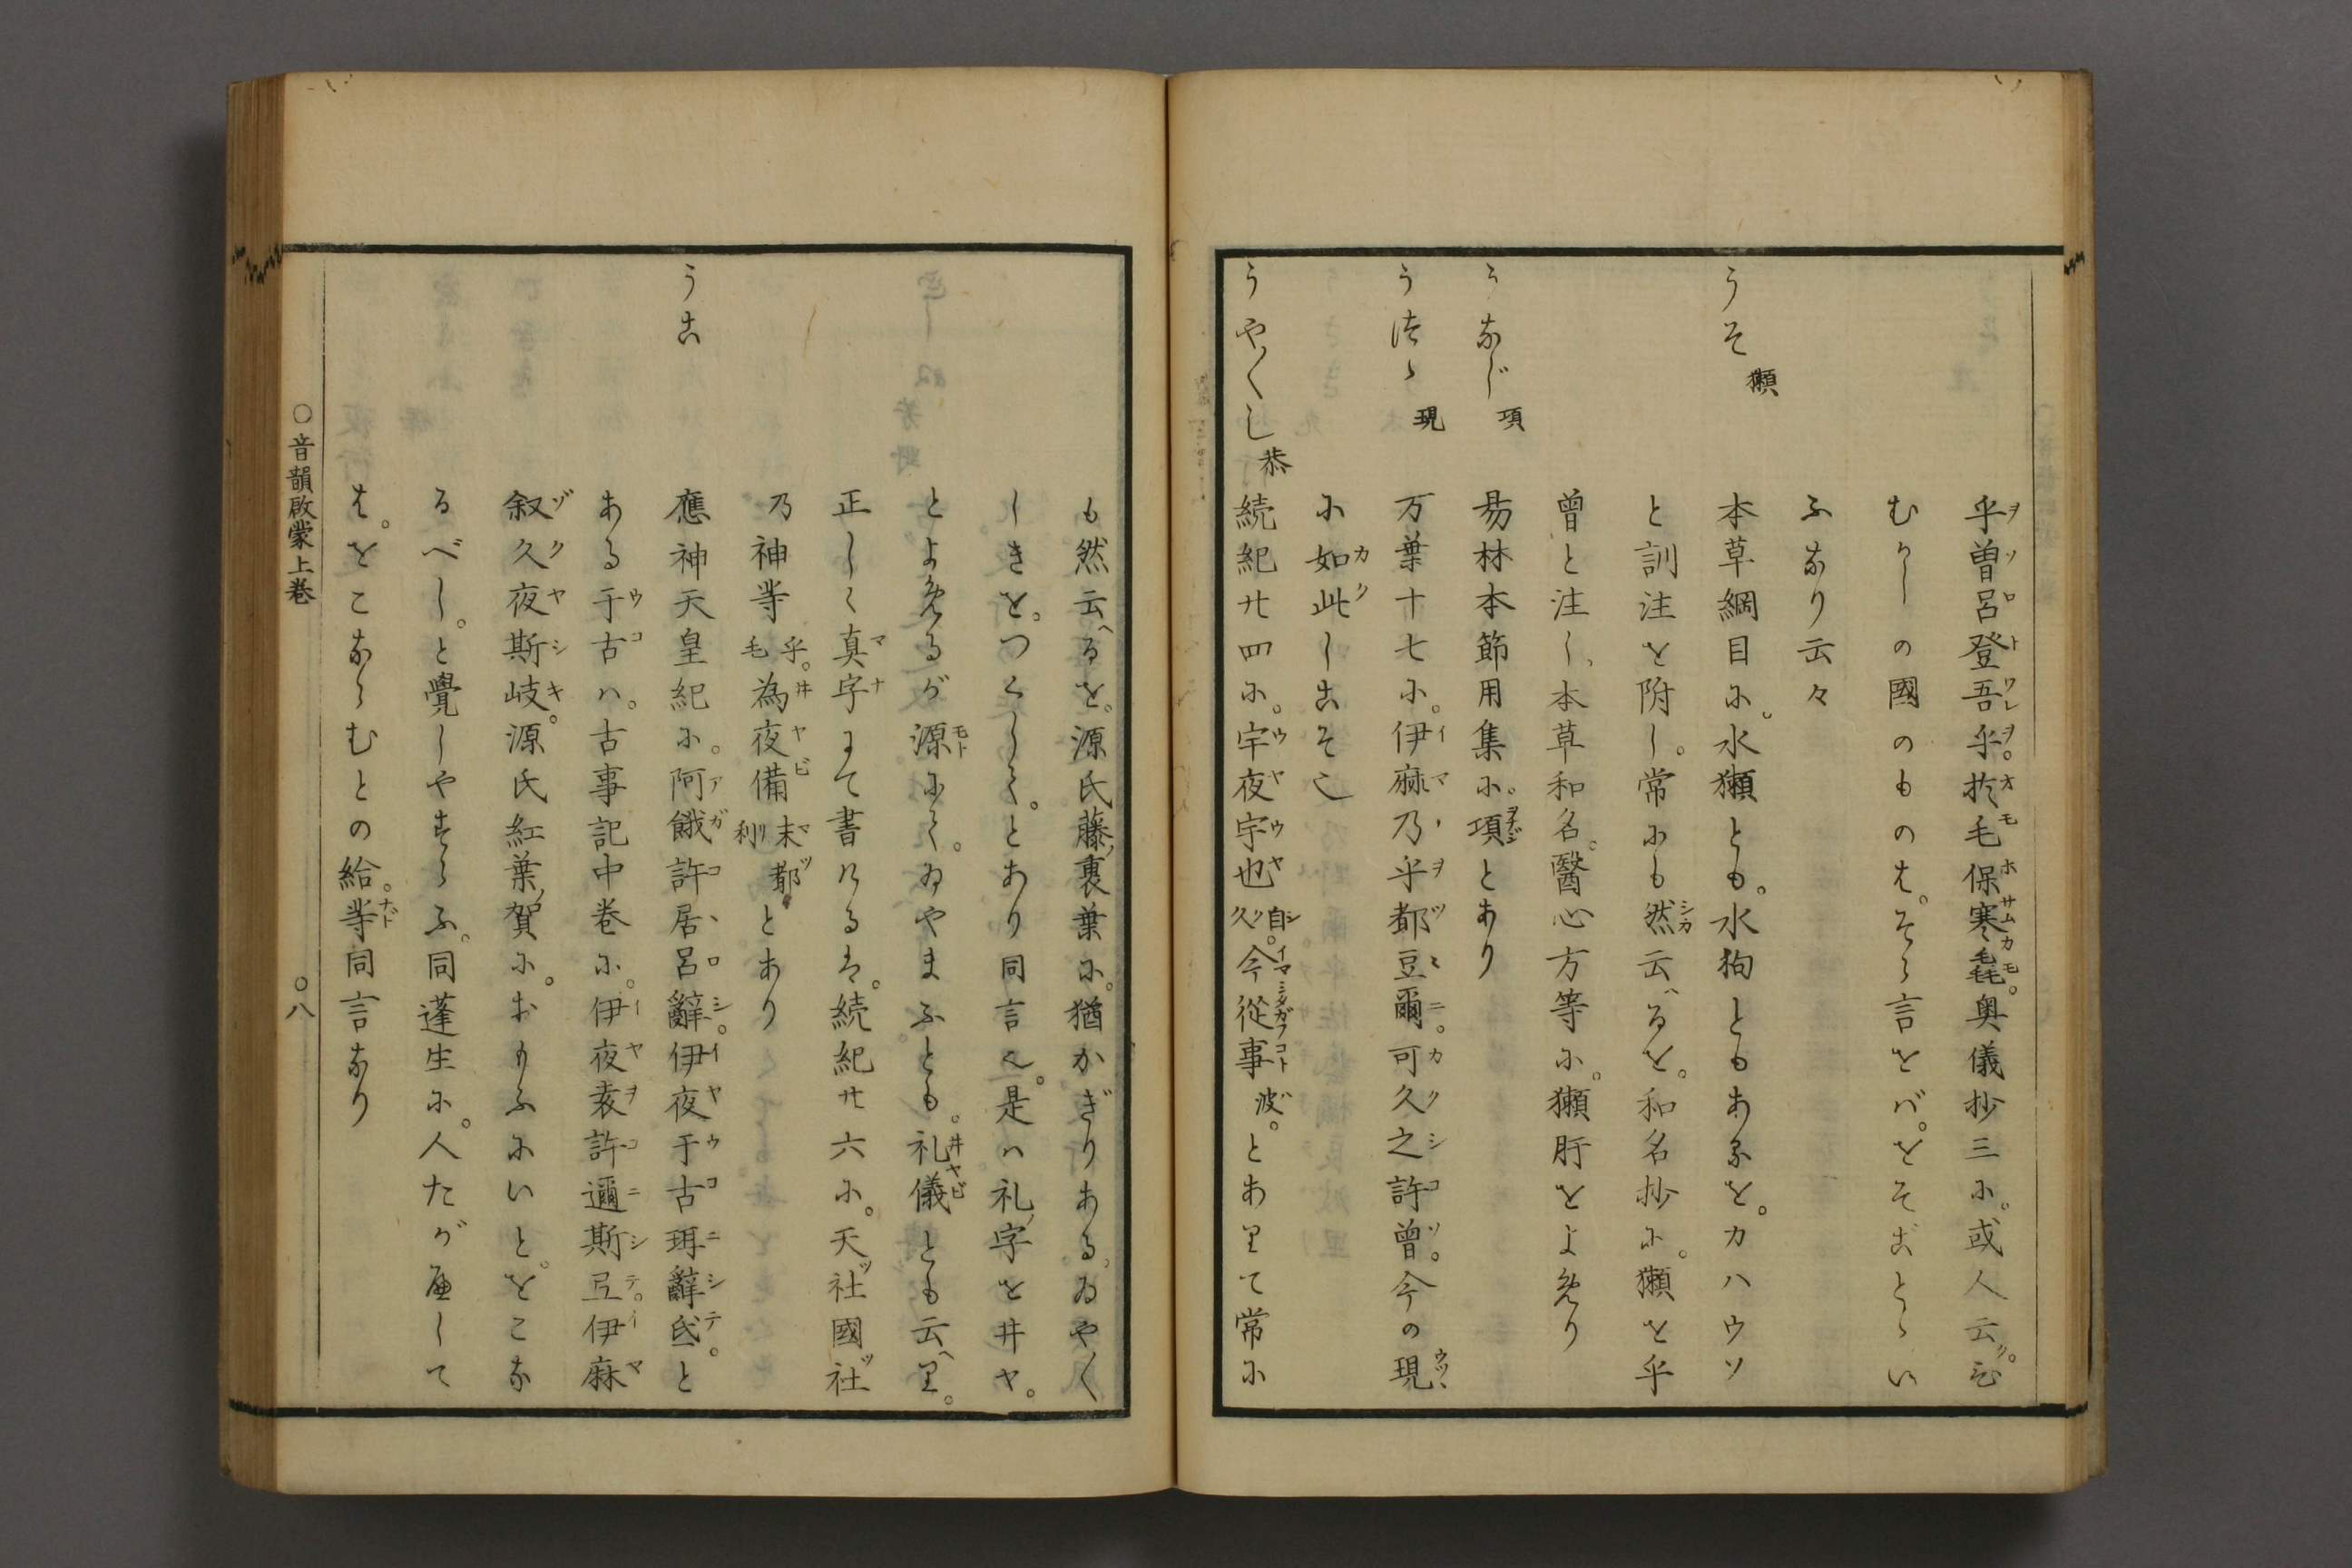 乎曽呂登吾乎。於毛保寒毳。奥儀抄三尓。或人云。ひ
むかしの國のものは。そら言をバ。をそごとゝい
ふなり云々
うそ 獺 本草綱目尓。水獺とも。水狗ともあるを。カハウソ
と訓注を附し。常尓も然云るを。和名抄尓。獺を乎
曾と注し、本草和名。醫心方等尓。獺肝をよめり
うなじ 項 易林本節用集尓。項とあり
うつゝ 現 万葉十七尓。伊麻乃乎都豆爾。可久之許曾。今の現
尓如此しこそ也
うや〱し 恭 続紀廿四尓。宇夜宇也自久。今從事波。とありて常尓
も然云るを。源氏藤裏葉尓。猶かぎりある。ゐや〱
しきを。つくしく。とあり同言也。是ハ礼字を井ヤ。
とよめるが源尓て。ゐやまふとも。礼儀とも云り。
正しく真字にて書けるは。続紀廿六尓。天社國社
乃神等乎毛。為夜備末都利とあり
うこ 應神天皇紀尓。阿餓許居呂辭。伊夜于古珥辭氐。と
ある于古ハ。古事記中巻尓。伊夜袁許邇斯弖。伊麻
叙久夜斯岐。源氏紅葉賀尓。おもふにいと。をこな
るべし。と覺しやすらふ。同蓬生尓。人たが
へして
は。をこならむとの給。等同言なり
○音韻啟蒙上巻
○八